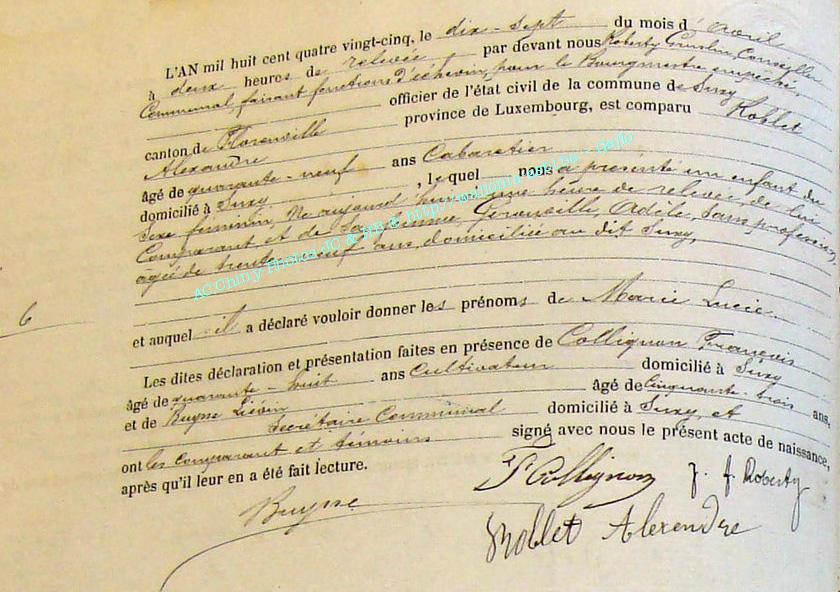 L'AN mil huit cent quatre vingt-cinq, le dix-sept du mois d'avril
à deux heures de relevée par devant nous Roberty Conseiller
Communal, faisant fonctions d'échevin, pour le Bourgmestre empêché,
officier de l'état civil de la commune de Suxy
canton de Florenville province de Luxembourg, est comparu Noblet
Alexandre
âgé de quarante-neuf ans Cabaretier
domicilié à Suxy, lequel nous a présenté un enfant du
Sexe féminin, Né aujourd'hui, à une heure de relevée, de lui
Comparant et de Sa femme, Adèle, Sans profession,
âgée de trente-neuf ans, domiciliée au dit Suxy,
6
et auquel il a déclaré vouloir donner les prénoms de Marie Lucie
Les dites déclaration et présentation faites en présence de Collignon François
âgé de quarante-huit ans Cultivateur domicilié à Suxy
et de Buysse Liévin âgé de Cinquante-trois ans,
Secrétaire Communal domicilié à Suxy, et
ont les comparant et témoins signé avec nous le présent acte de naissance,
après qu'il leur en a été fait lecture.
Buysse F Collignon J. f Roberty
Noblet Alexendre
AC Chiny-Photos JC &